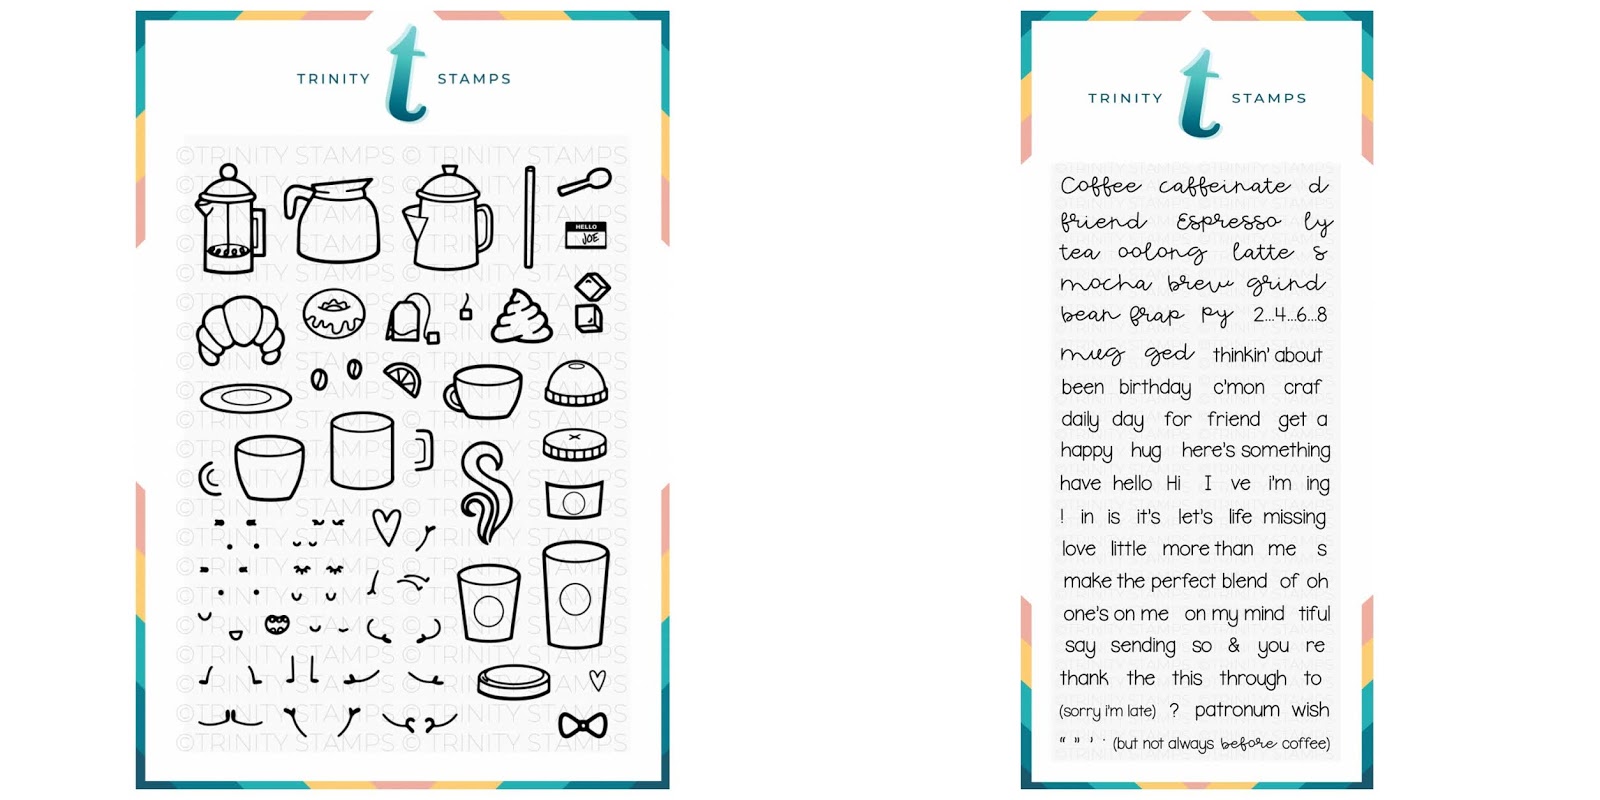 TRINITY t STAMPS
©TRINITY STAMPS © TRINITY STAMPS
©TRINITY STAMPS © TRINITY STAMPS
HELLO
JOE
TRINITY t STAMPS
Coffee caffeinate d
friend Espresso ly
tea oolong latte s
mocha brew grind
bean frap py 2...4...6...8
mug ged thinkin' about
been birthday c'mon craf
daily day for friend get a
happy hug here's something
have hello Hi I ve i'm ing
! in is it's let's life missing
love little more than me s
make the perfect blend of oh
one's on me on my mind tiful
say sending so & you re
thank the this through to
(sorry i'm late) ? patronum wish
“ ” ’ · (but not always before coffee)